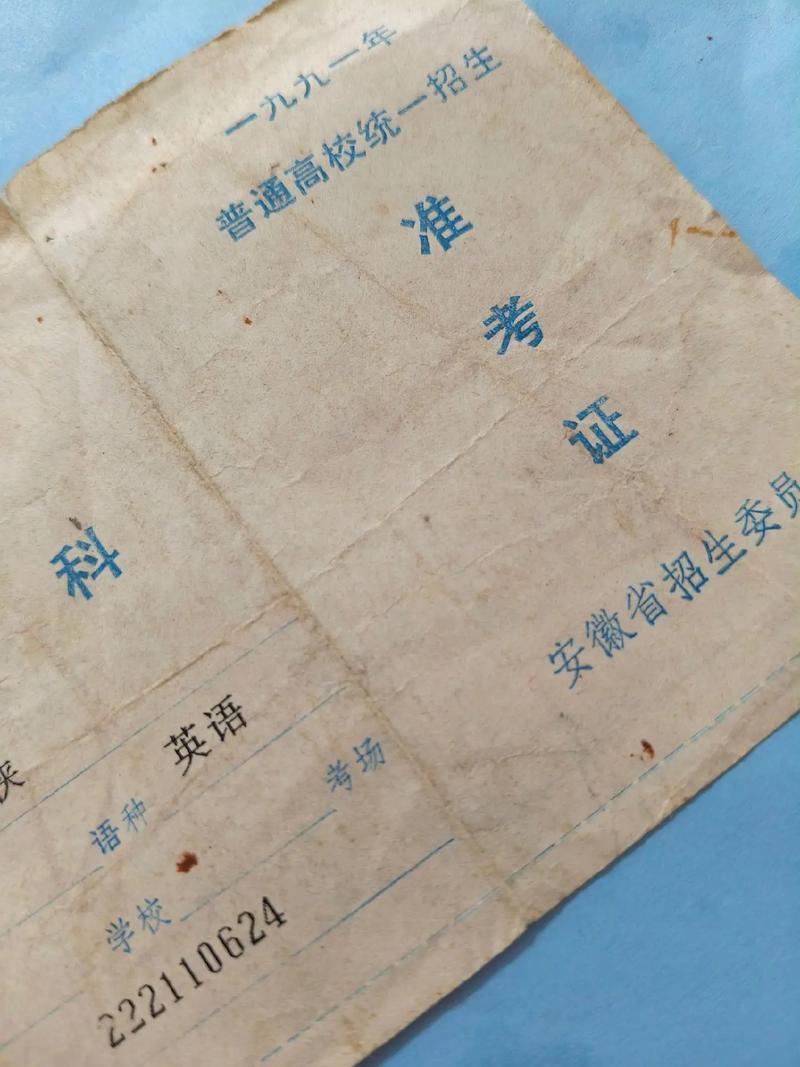 一九九一年
普通高校统一招生
准考证
安徽省招生委员
科
语种 英语
学校 考场
222110624